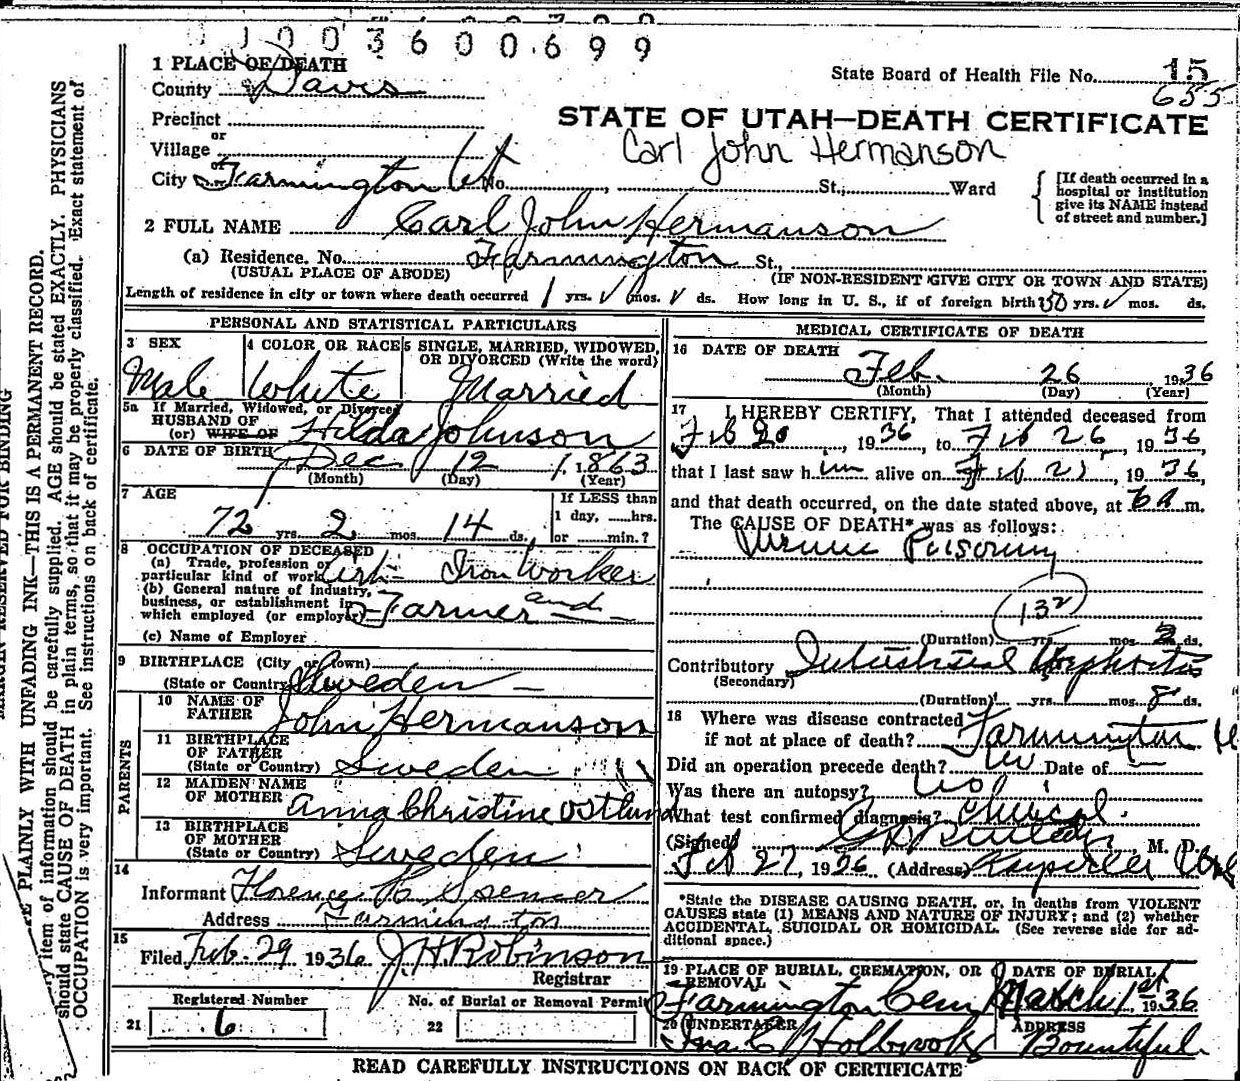 1 0 0 3 6 0 0 6 9 9
1 PLACE OF DEATH
State Board of Health File No. 15
County Davis
655
Precinct
STATE OF UTAH—DEATH CERTIFICATE
or
Village
Carl John Hermanson
or
City Farmington Ut No. , St.; Ward
[If death occurred in a
hospital or institution
give its NAME instead
of street and number.]
2 FULL NAME Carl John Hermanson
(a) Residence. No. Farmington St.,
(USUAL PLACE OF ABODE) (IF NON-RESIDENT GIVE CITY OR TOWN AND STATE)
Length of residence in city or town where death occurred 1 yrs. mos. ds. How long in U. S., if of foreign birth 50 yrs. mos. ds.
PERSONAL AND STATISTICAL PARTICULARS
3 SEX
Male
4 COLOR OR RACE
White
5 SINGLE, MARRIED, WIDOWED,
OR DIVORCED (Write the word)
Married
5a If Married, Widowed, or Divorced
HUSBAND OF
(or) WIFE OF Hilda Johnson
6 DATE OF BIRTH Dec 12, 1863
(Month) (Day) (Year)
7 AGE
72 yrs. 2 mos. 14 ds.
If LESS than
1 day, hrs.
or min.?
8 OCCUPATION OF DECEASED
(a) Trade, profession or
particular kind of work Iron Worker
(b) General nature of industry,
business, or establishment in
which employed (or employer) Farmer and
(c) Name of Employer
9 BIRTHPLACE (City or town)
(State or Country) Sweden
PARENTS
10 NAME OF
FATHER John Hermanson
11 BIRTHPLACE
OF FATHER
(State or Country) Sweden
12 MAIDEN NAME
OF MOTHER Anna Christine Ostlund
13 BIRTHPLACE
OF MOTHER
(State or Country) Sweden
14
Informant Florence H Spencer
Address Farmington
15
Filed Feb. 29 1936 J. H. Robinson
Registrar
Registered Number
21 6
No. of Burial or Removal Permit
22
MEDICAL CERTIFICATE OF DEATH
16 DATE OF DEATH
Feb. 26 1936
(Month) (Day) (Year)
17 I HEREBY CERTIFY, That I attended deceased from
Feb 20, 1936, to Feb 26, 1936,
that I last saw him alive on Feb 25, 1936,
and that death occurred, on the date stated above, at 6 a m.
The CAUSE OF DEATH* was as follows:
Uremic Poisoning
132
(Duration) yrs. mos. 2 ds.
Contributory Interstitial Nephritis
(Secondary)
(Duration) yrs. mos. 8 ds.
18 Where was disease contracted
if not at place of death? Farmington
Did an operation precede death? no Date of
Was there an autopsy? no
What test confirmed diagnosis? Clinical
(Signed) M. D.
Feb 27, 1936 (Address) Kaysville Utah
*State the DISEASE CAUSING DEATH, or, in deaths from VIOLENT
CAUSES state (1) MEANS AND NATURE OF INJURY; and (2) whether
ACCIDENTAL, SUICIDAL OR HOMICIDAL. (See reverse side for ad-
ditional space.)
19 PLACE OF BURIAL, CREMATION, OR
REMOVAL
Farmington Cem
DATE OF BURIAL
March 1st 1936
20 UNDERTAKER
Ira C Holbrook
ADDRESS
Bountiful
READ CAREFULLY INSTRUCTIONS ON BACK OF CERTIFICATE
MARGIN RESERVED FOR BINDING
PLAINLY WITH UNFADING INK—THIS IS A PERMANENT RECORD.
item of information should be carefully supplied. AGE should be stated EXACTLY. PHYSICIANS
should state CAUSE OF DEATH in plain terms, so that it may be properly classified. Exact statement of
OCCUPATION is very important. See instructions on back of certificate.